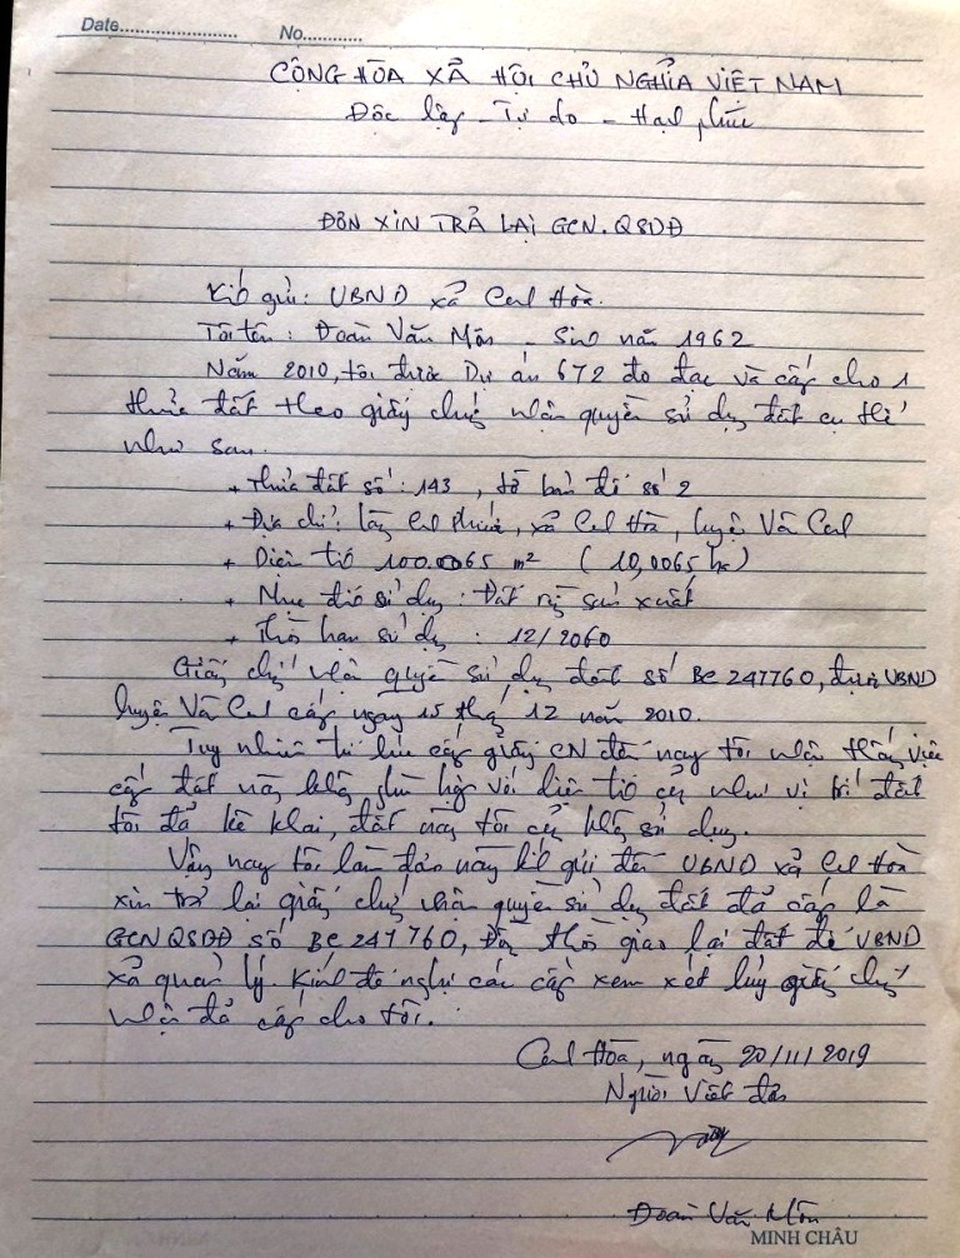 Date........................ No............
CỘNG HÒA XÃ HỘI CHỦ NGHĨA VIỆT NAM
Độc lập - Tự do - Hạnh phúc
ĐƠN XIN TRẢ LẠI GCN.QSDĐ
Kính gửi: UBND xã Canh Hòa.
Tôi tên: Đoàn Văn Môn - Sinh năm 1962
Năm 2010, tôi được Dự án 672 đo đạc và cấp cho 1
thửa đất theo giấy chứng nhận quyền sử dụng đất cụ thể
như sau.
+ Thửa đất số: 143, tờ bản đồ số 2
+ Địa chỉ: làng Canh Phước, xã Canh Hòa, huyện Vân Canh
+ Diện tích 100.0065 m² (10,0065 ha)
+ Mục đích sử dụng: Đất rừng sản xuất
+ Thời hạn sử dụng: 12/2060
Giấy chứng nhận quyền sử dụng đất số BC 247760, được UBND
huyện Vân Canh cấp ngày 15 tháng 12 năm 2010.
Tuy nhiên từ lúc cấp giấy CN đến nay tôi nhận thấy việc
cấp đất này không phù hợp với diện tích cũng như vị trí đất
tôi đã kê khai, đất này tôi cũng không sử dụng.
Vậy nay tôi làm đơn này kính gửi đến UBND xã Canh Hòa
xin trả lại giấy chứng nhận quyền sử dụng đất đã cấp là
GCNQSDĐ số BC 247760, Đồng thời giao lại đất để UBND
xã quản lý. Kính đề nghị các cấp xem xét hủy giấy chứng
nhận đã cấp cho tôi.
Canh Hòa, ngày 20/11/2019
Người viết đơn
Đoàn Văn Môn
MINH CHÂU